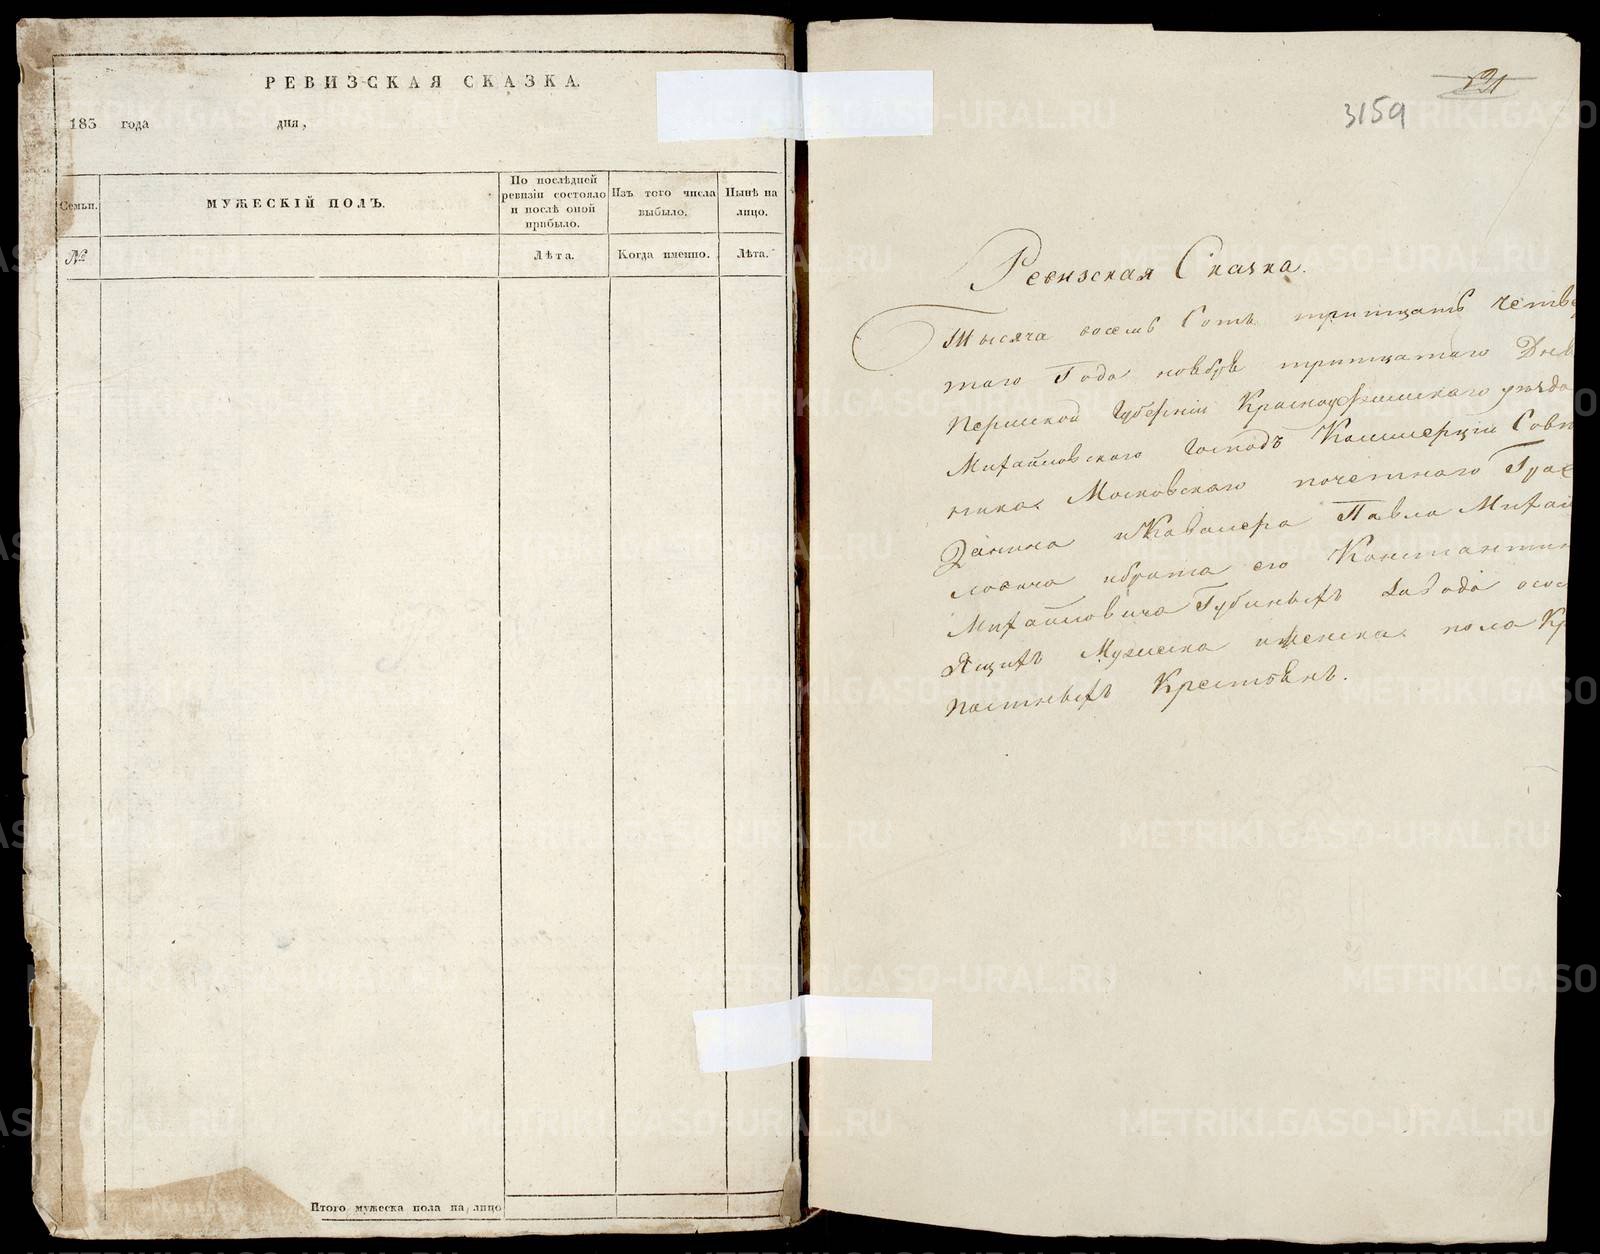 РЕВИЗСКАЯ СКАЗКА.
183 года дня,
Семьи.
МУЖЕСКІЙ ПОЛЪ.
По послѣдней ревизіи состояло и послѣ оной прибыло.
Изъ того числа выбыло.
Нынѣ на лицо.
№
Лѣта.
Когда именно.
Лѣта.
Итого мужеска пола на лицо
3159
Ревизская Сказка.
Тысяча восемь Сотъ тритцать четвер
таго Года ноября тритцатаго Дня
Пермской Губерніи Красноуфимскаго уѣзда
Михайловскаго Господъ Коммерціи Совѣт
ника Московскаго почетнаго Граж
Данина и Кавалера Павла Михай
ловича и брата его Константина
Михайловича Губиныхъ завода о сос
Ящихъ Мужеска и женска пола Кр
постныхъ Крестьянъ.
METRIKI.GASO-URAL.RU